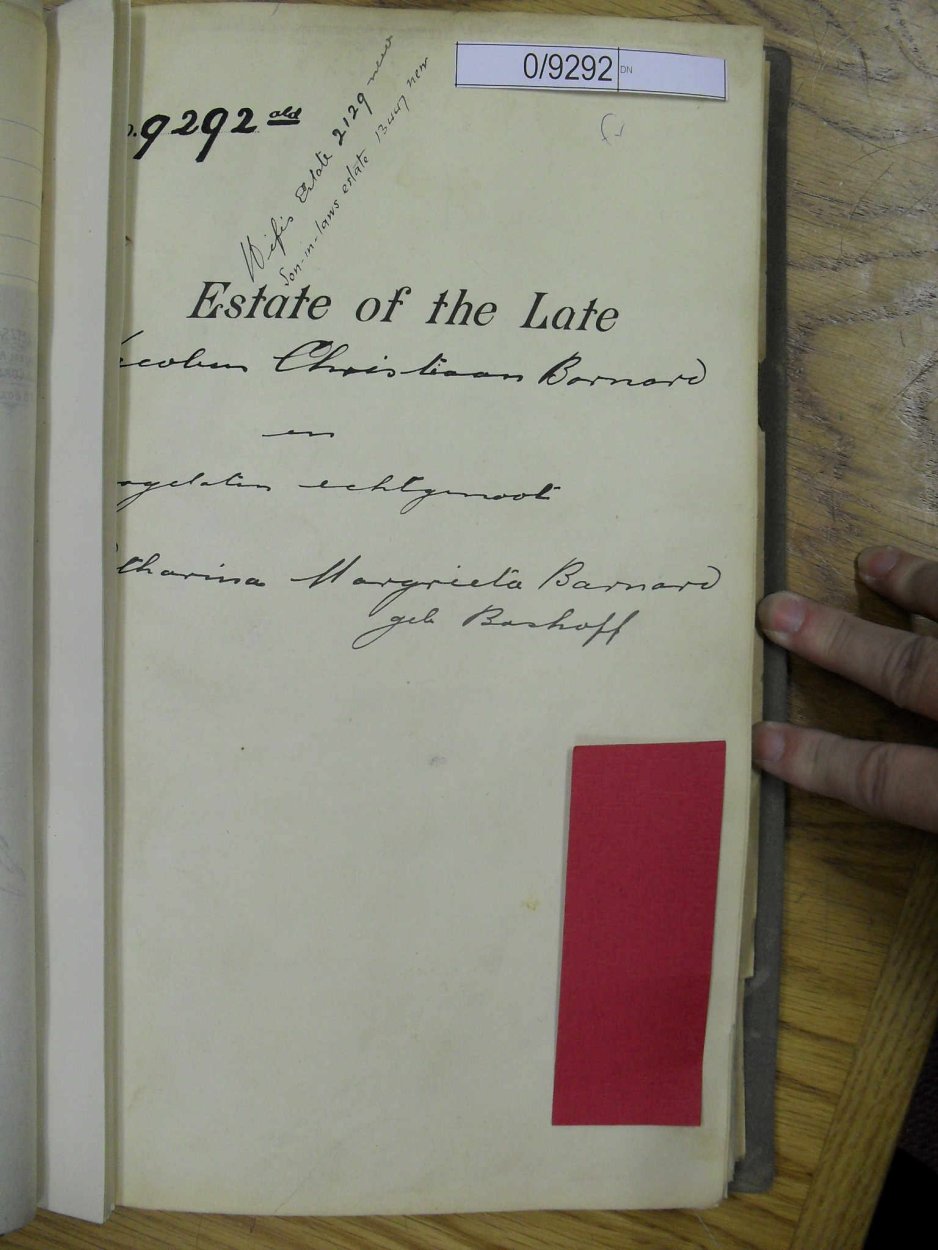 0/9292 DN
9292 old
Wife's Estate 2129 new
Son-in-laws estate new
Estate of the Late
Christiaan Barnard
en
echtgenoot
Margrieta Barnard
geb Boshoff